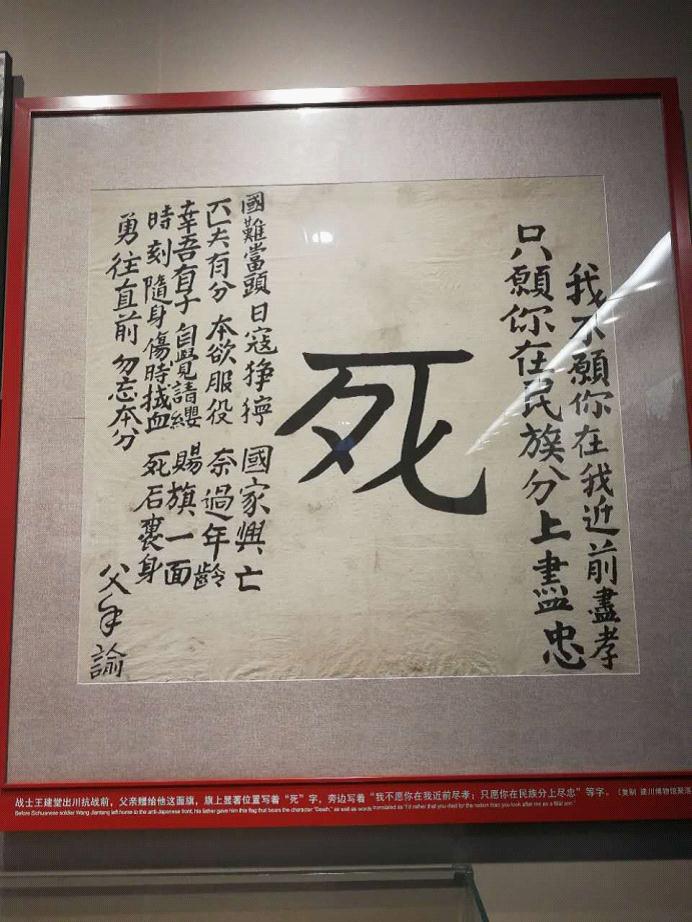 我不願你在我近前盡孝
只願你在民族分上盡忠
死
國難當頭 日寇猙獰 國家興亡
匹夫有分 本欲服役 奈過年齡
幸吾有子 自覺請纓 賜旗一面
時刻隨身 傷時拭血 死后裹身
勇往直前 勿忘本分
父手諭
战士王建堂出川抗战前，父亲赠给他这面旗，旗上显著位置写着“死”字，旁边写着“我不愿你在我近前尽孝；只愿你在民族分上尽忠”等字。（复制 建川博物馆聚落
Before Sichuanese soldier Wang Jiantang left home to the anti-Japanese front, his father gave him this flag that bears the character "Death," as well as words translated as "I'd rather that you died for the nation than you look after me as a filial son."